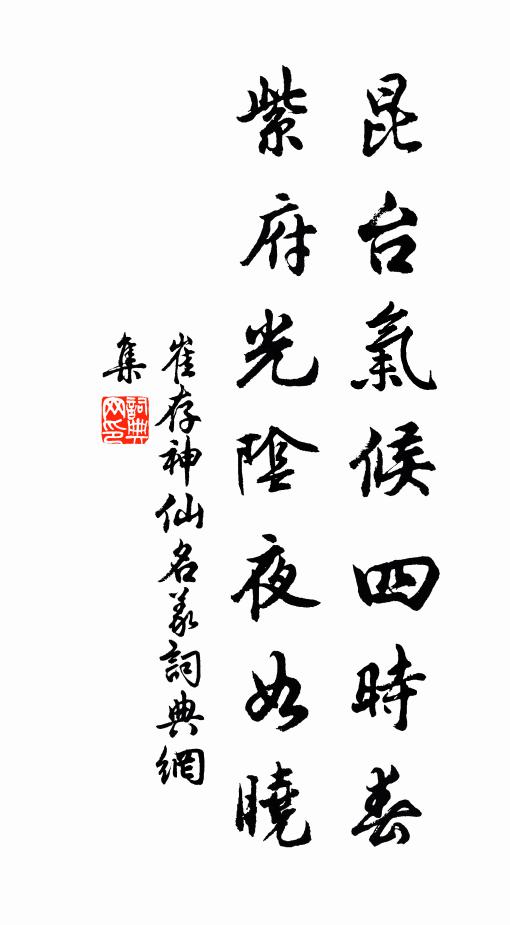 昆台氣候四時春
紫府光陰夜如曉
崔存神仙名義詞典網
集
詞典网印